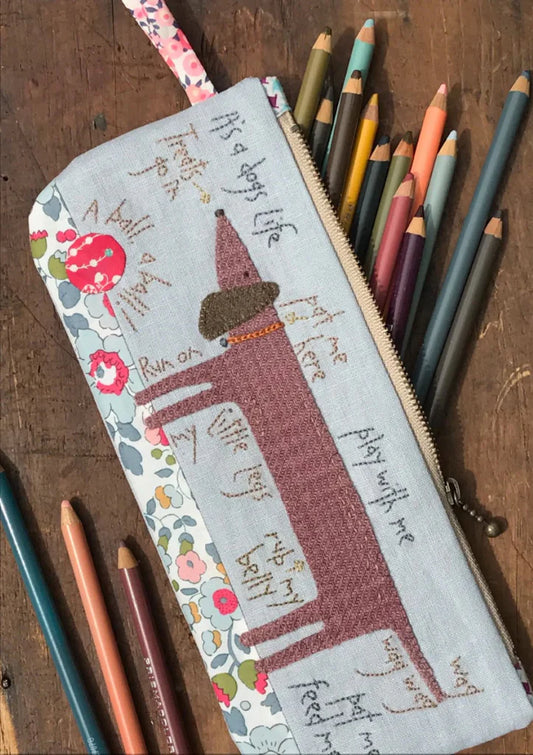 It's a dogs life
Treats
go in
A ball
a ball
pat me
here
Run on
my
little legs
play with me
rub my
belly
wag wag
wag
pat me
feed me
PRISMACOLOR